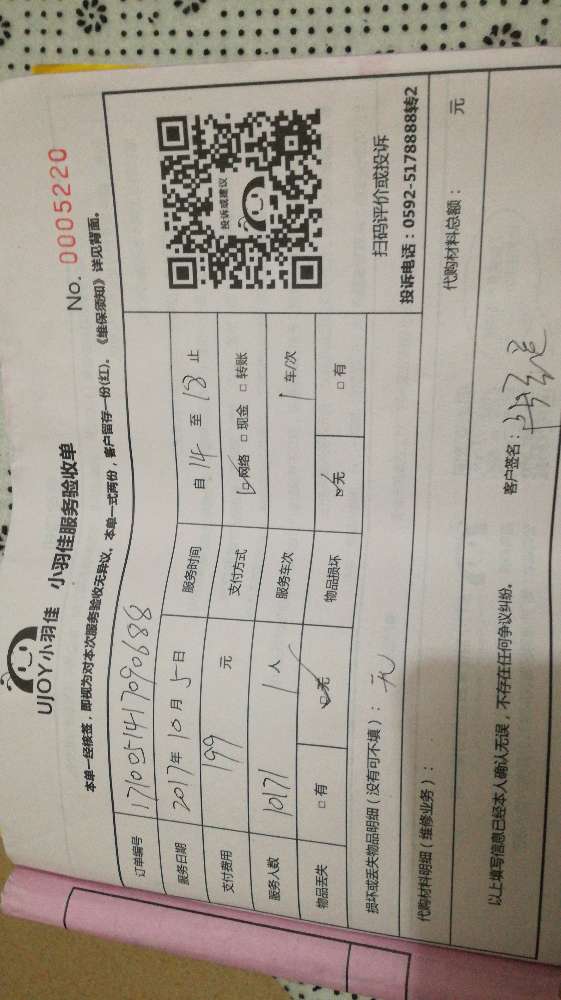 UJOY小羽佳 小羽佳服务验收单
No. 0005220
本单一经核签，即视为对本次服务验收无异议，本单一式两份，客户留存一份(红)。《维保须知》详见背面。
订单编号 1710051417090688
服务日期 2017年10月5日 服务时间 自 14 至 18 止
支付费用 199 元 支付方式 网络 现金 转账
服务人数 10171 1人 服务车次 1 车/次
物品丢失 有 无 物品损坏 无 有
投诉或建议
扫码评价或投诉
投诉电话：0592-5178888转2
损坏或丢失物品明细（没有可不填）：无
代购材料明细（维修业务）：
代购材料总额： 元
以上填写信息已经本人确认无误，不存在任何争议纠纷。
客户签名：